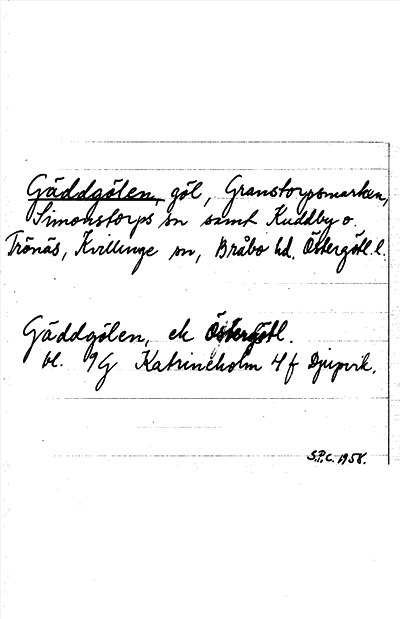 Gäddgölen, göl, Granstorpsmarken,
Simonstorps sn samt Kuddby o.
Trönäs, Kvillinge sn, Bråbo hd, Östergötl. l.
Gäddgölen, ek Östergötl.
bl. 9G Katrineholm 4f Djupvik.
S.P.C. 1958.